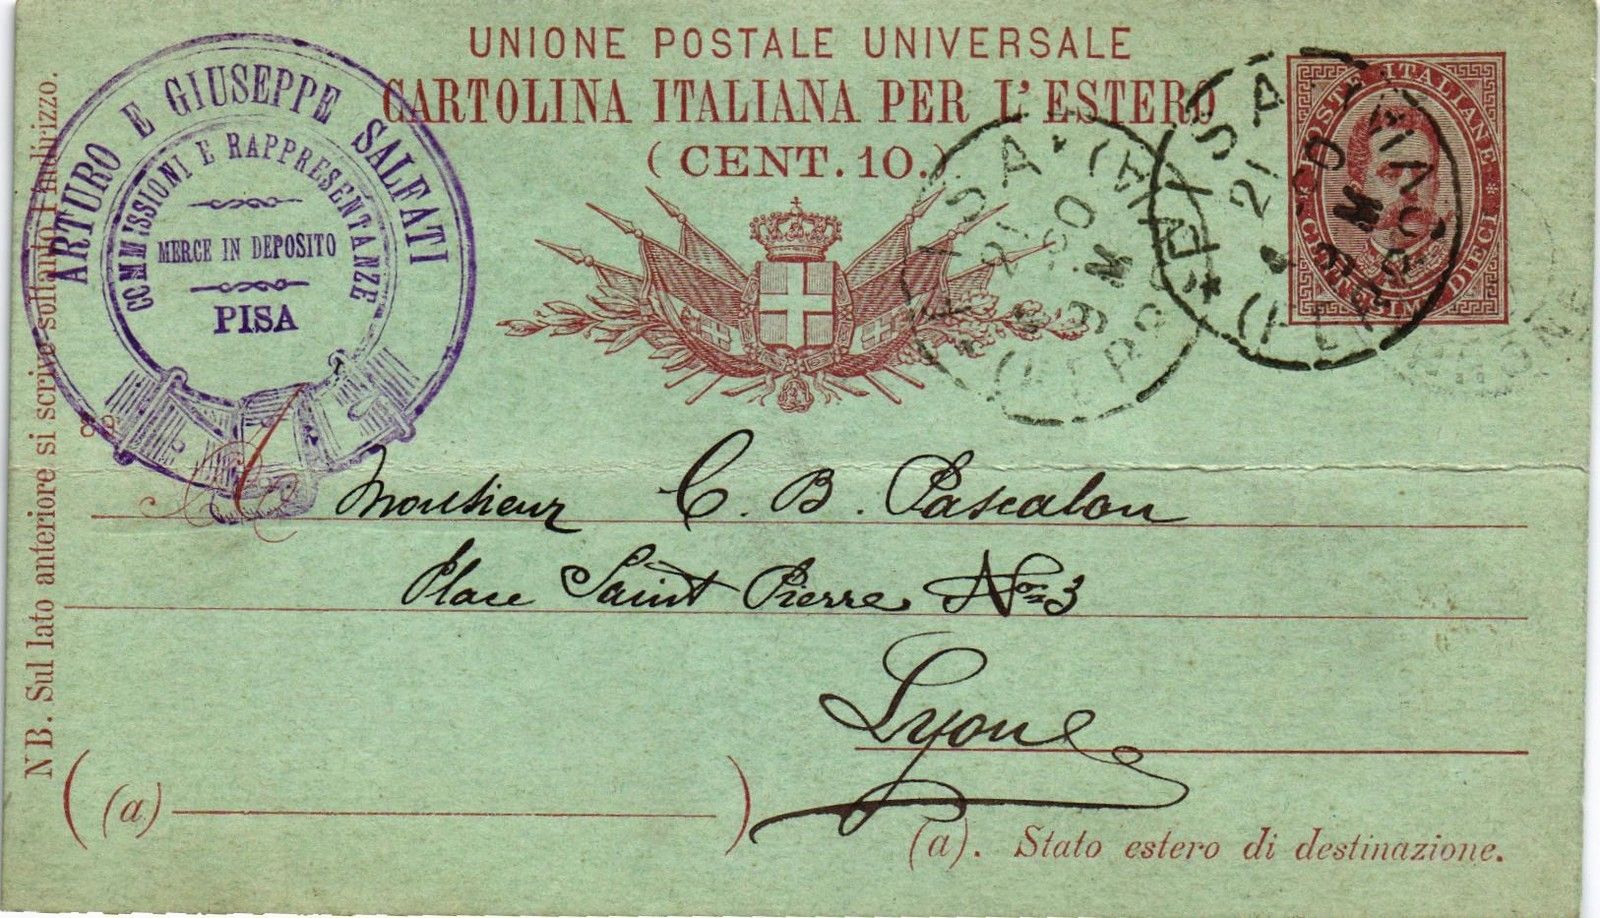 UNIONE POSTALE UNIVERSALE
CARTOLINA ITALIANA PER L'ESTERO
(CENT. 10.)
ARTURO E GIUSEPPE SALFATI
COMMISSIONI E RAPPRESENTANZE
MERCE IN DEPOSITO
PISA
POSTE ITALIANE
CENTESIMI DIECI
PISA
21
9 M
PISA
21
9 M
(FERROVIA)
89
Monsieur C. B. Pascalon
Place Saint Pierre No 3
Lyon
(a)
(a). Stato estero di destinazione.
NB. Sul lato anteriore si scrive soltanto l'indirizzo.